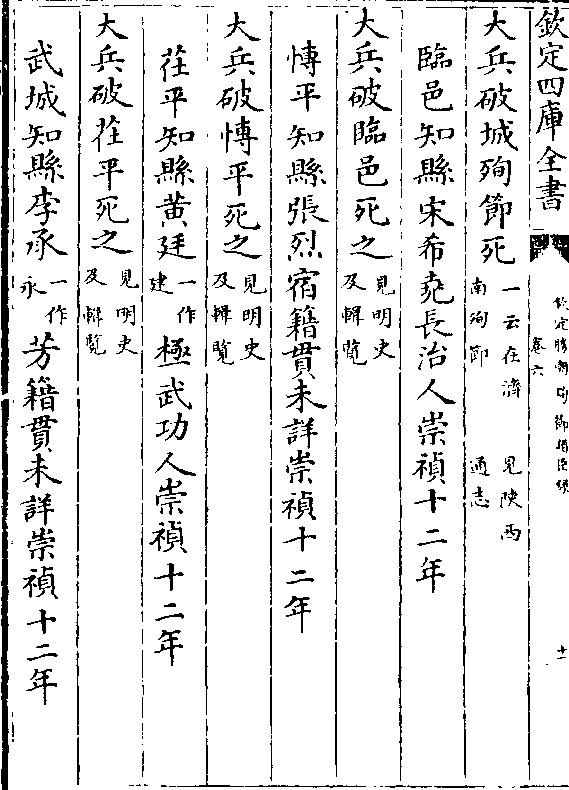 欽定四庫全書
欽定勝朝殉節諸臣錄
卷六
十一
大兵破城殉節死一云在濟南殉節 見陝西通志
臨邑知縣宋希堯長治人崇禎十二年
大兵破臨邑死之見明史及輯覽
愽平知縣張烈宿籍貫未詳崇禎十二年
大兵破愽平死之見明史及輯覽
茌平知縣黄廷一作建極武功人崇禎十二年
大兵破茌平死之見明史及輯覽
武城知縣李承一作永芳籍貫未詳崇禎十二年